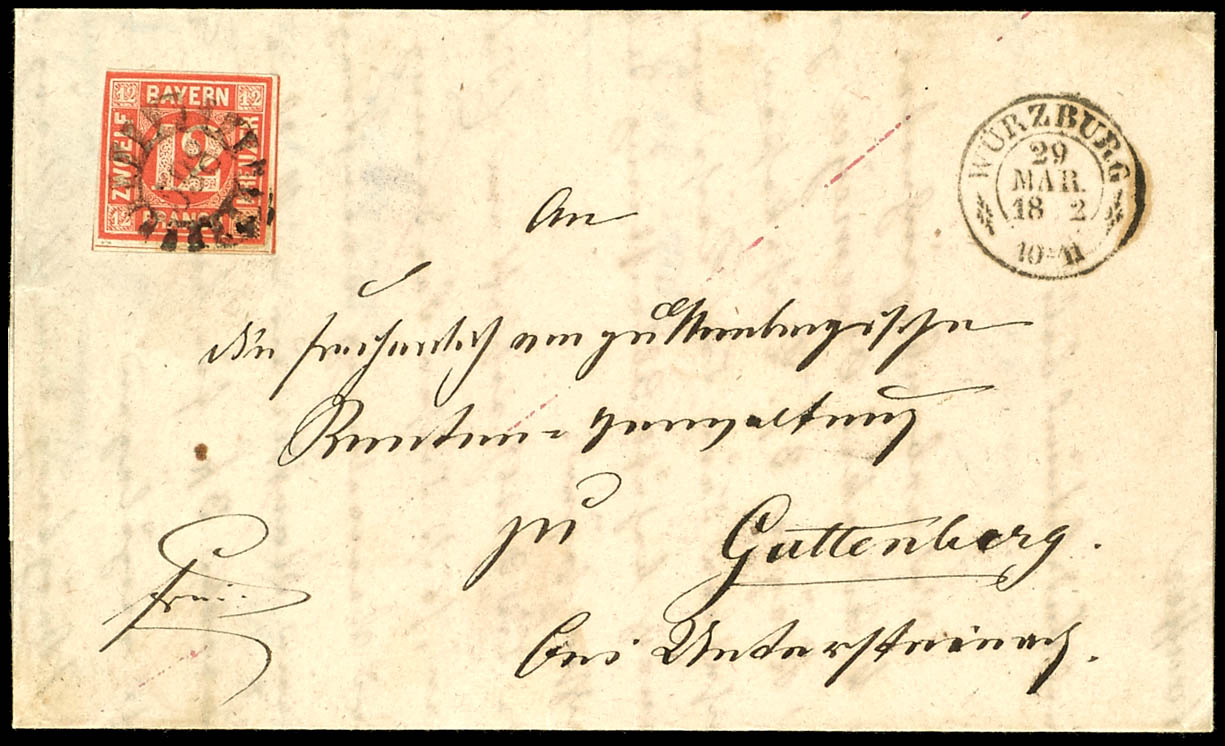 BAYERN
12 12
ZWÖLF
12
KREUZER
FRANCO
12
WÜRZBURG
29
MAR.
18 2
10-11
An
die freiherrlich von guttenbergische
Renten-Verwaltung
zu Guttenberg.
bei Untersteinach.
frei.